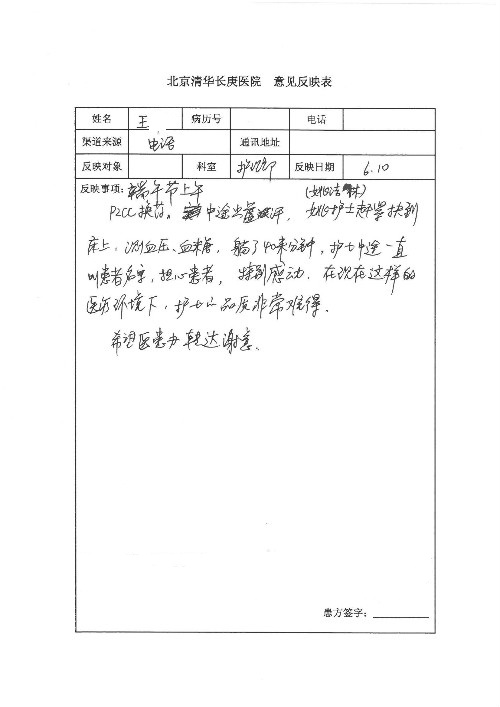 北京清华长庚医院 意见反映表
姓名 王 病历号 电话
渠道来源 电话 通讯地址
反映对象 科室 护理部 反映日期 6.10
反映事项：端午节上午
PICC换药。中途出虚汗，护士赶紧扶到
床上，测血压、血糖，躺了40来分钟，护士中途一直
叫患者名字，担心患者，特别感动，在现在这样的
医疗环境下，护士的品质非常难得。
希望医患办转达谢意。
患方签字：